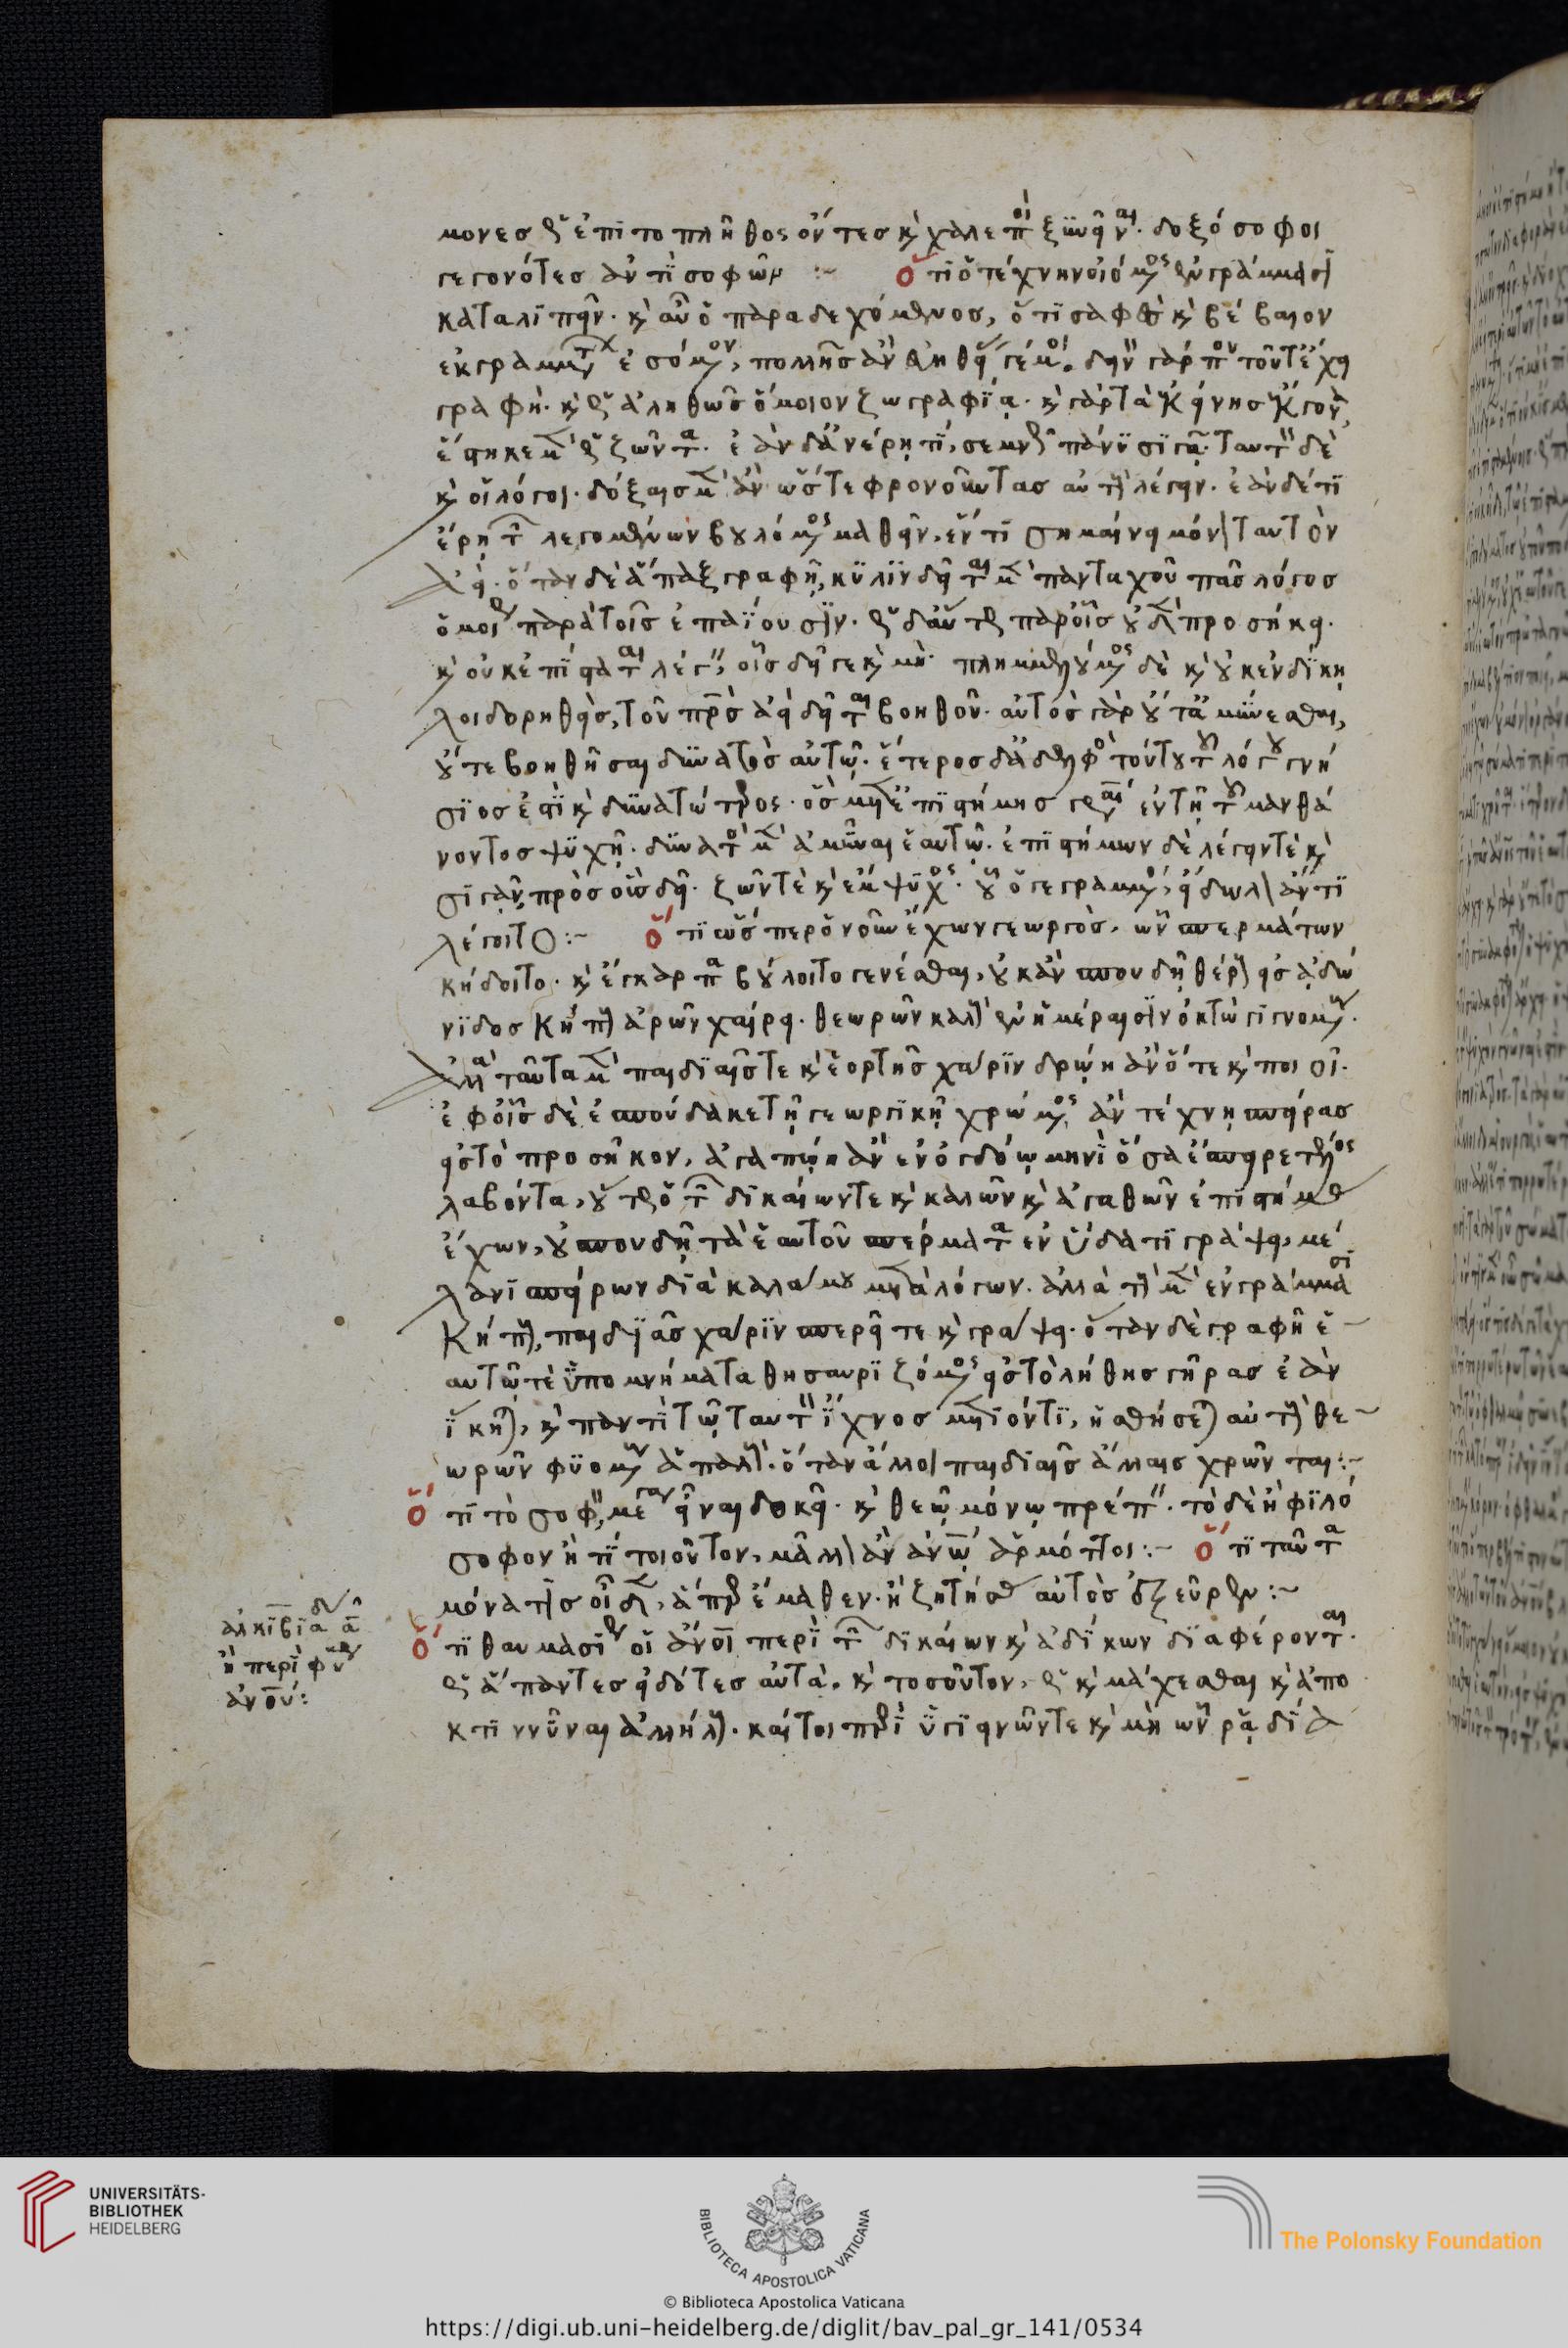 μονες ὡς ἐπὶ τὸ πλῆθος ὄντες καὶ χαλεποὶ ξυνεῖναι. δοξόσοφοι
γεγονότες ἀντὶ σοφῶν :~ ὅτι ὁ τέχνην οἰόμενος ἐν γράμμασι
καταλιπεῖν. καὶ αὖ ὁ παραδεχόμενος, ὅτι σαφὲς καὶ βέβαιον
ἐκ γραμμάτων ἐσόμενον, πολλῆς ἂν εὐηθείας γέμοι. δεινὸν γάρ που τοῦτ' ἔχει
γραφή. καὶ ὡς ἀληθῶς ὅμοιον ζωγραφίᾳ. καὶ γὰρ τὰ ἐκείνης ἔκγονα,
ἕστηκε μὲν ὡς ζῶντα. ἐὰν δ' ἀνέρῃ τι, σεμνῶς πάνυ σιγᾷ. ταυτὸν δὲ
καὶ οἱ λόγοι. δόξαις μὲν ἂν ὥς τε φρονοῦντας αὐτοὺς λέγειν. ἐὰν δέ τι
ἔρῃ τῶν λεγομένων βουλόμενος μαθεῖν, ἕν τι σημαίνει μόνον ταυτὸν
ἀεί. ὅταν δὲ ἅπαξ γραφῇ, κυλινδεῖται μὲν πανταχοῦ πᾶς λόγος
ὁμοίως παρὰ τοῖς ἐπαΐουσιν. ὡς δ' αὕτως παρ' οἷς οὐδὲν προσήκει.
καὶ οὐκ ἐπίσταται λέγειν, οἷς δεῖ γε καὶ μή. πλημμελούμενος δὲ καὶ οὐκ ἐν δίκῃ
λοιδορηθείς, τοῦ πατρὸς ἀεὶ δεῖται βοηθοῦ. αὐτὸς γὰρ οὔτ' ἀμύνεσθαι,
οὔτε βοηθῆσαι δυνατὸς αὑτῷ. ἕτερος δ' ἀδελφὸς τούτου τοῦ λόγου γνή
σιός ἐστι καὶ δυνατώτερος. ὃς μετ' ἐπιστήμης γράφεται ἐν τῇ τοῦ μανθά
νοντος ψυχῇ. δυνατὸς μὲν ἀμῦναι ἑαυτῷ. ἐπιστήμων δὲ λέγειν τὲ καὶ
σιγᾶν πρὸς οὓς δεῖ. ζῶν τὲ καὶ ἔμψυχος. οὗ ὁ γεγραμμένος, εἴδωλον ἄν τι
λέγοιτο :~ ὅτι ὥσπερ ὁ νοῦν ἔχων γεωργός, ὧν σπερμάτων
κήδοιτο. καὶ ἔγκαρπα βούλοιτο γενέσθαι, οὐκ ἂν σπουδῇ θέρους εἰς ἀδώ
νιδος κήπους ἀρῶν χαίρει. θεωρῶν καλοὺς ἐν ἡμέραισιν ὀκτὼ γιγνομένους.
ἀλλὰ ταῦτα μὲν παιδιᾶς τε καὶ ἑορτῆς χάριν δρῴη ἂν ὅτε καὶ ποιοῖ.
ἐφ' οἷς δὲ ἐσπούδακε τῇ γεωργικῇ χρώμενος ἂν τέχνῃ σπείρας
εἰς τὸ προσῆκον, ἀγαπῴη ἂν ἐν ὀγδόῳ μηνὶ ὅσα ἔσπειρε τέλος
λαβόντα, οὕτως ὁ τῶν δικαίων τε καὶ καλῶν καὶ ἀγαθῶν ἐπιστήμας
ἔχων, οὐ σπουδῇ τὰ ἑαυτοῦ σπέρματα ἐν ὕδατι γράψει, μέ
λανι σπείρων διὰ καλάμου μετὰ λόγων. ἀλλὰ τοὺς μὲν ἐν γράμμασι
κήπους, παιδιᾶς χάριν σπερεῖ τε καὶ γράψει. ὅταν δὲ γραφῇ ἑ
αυτῷ τὲ ὑπομνήματα θησαυριζόμενος εἰς τὸ λήθης γῆρας ἐὰν
ἵκηται, καὶ παντὶ τῷ ταυτὸν ἴχνος μετιόντι, ἡσθήσεται αὐτοὺς θε
ωρῶν φυομένους ἁπαλούς. ὅταν ἄλλοι παιδιαῖς ἄλλαις χρῶνται :~
ὅτι τὸ σοφόν, μέγα εἶναι δοκεῖ. καὶ θεῷ μόνῳ πρέπειν. τὸ δὲ ἢ φιλό
σοφον ἤ τι τοιοῦτον, μᾶλλον ἂν ἀνθρώπῳ ἁρμόττοι :~ ὅτι ταῦτα
μόνα τὶς οἶδεν, ἃ παρ' ἑτέρων ἔμαθεν. ἢ ζητήσας αὐτὸς ἐξεῦρεν :~
ὅτι θαυμασίως οἱ ἄνθρωποι περὶ τῶν δικαίων καὶ ἀδίκων διαφέρονται.
ὡς ἅπαντες εἰδότες αὐτά. καὶ τοσοῦτον, ὡς καὶ μάχεσθαι καὶ ἀπο
κτιννῦναι ἀλλήλους. καίτοι περὶ ὑγιεινῶν τε καὶ μὴ ὧν ῥᾳδία
ἀλκιβιάδου ᾱ
ἢ περὶ φύσεως
ἀνου :
UNIVERSITÄTS-
BIBLIOTHEK
HEIDELBERG
BIBLIOTECA APOSTOLICA VATICANA
The Polonsky Foundation
© Biblioteca Apostolica Vaticana
https://digi.ub.uni-heidelberg.de/diglit/bav_pal_gr_141/0534